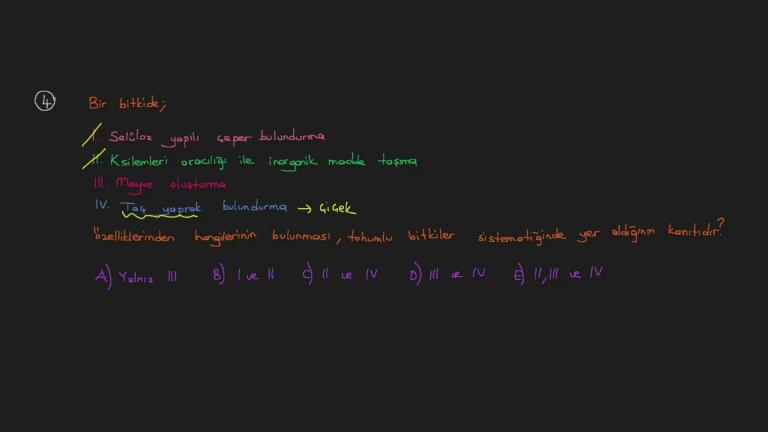 4 Bir bitkide;
I. Selüloz yapılı çeper bulundurma
II. Ksilemleri aracılığı ile inorganik madde taşıma
III. Meyve oluşturma
IV. Taç yaprak bulundurma → Çiçek
özelliklerinden hangilerinin bulunması, tohumlu bitkiler sistematiğinde yer aldığının kanıtıdır?
A) Yalnız III B) I ve II C) II ve IV D) III ve IV E) II, III ve IV